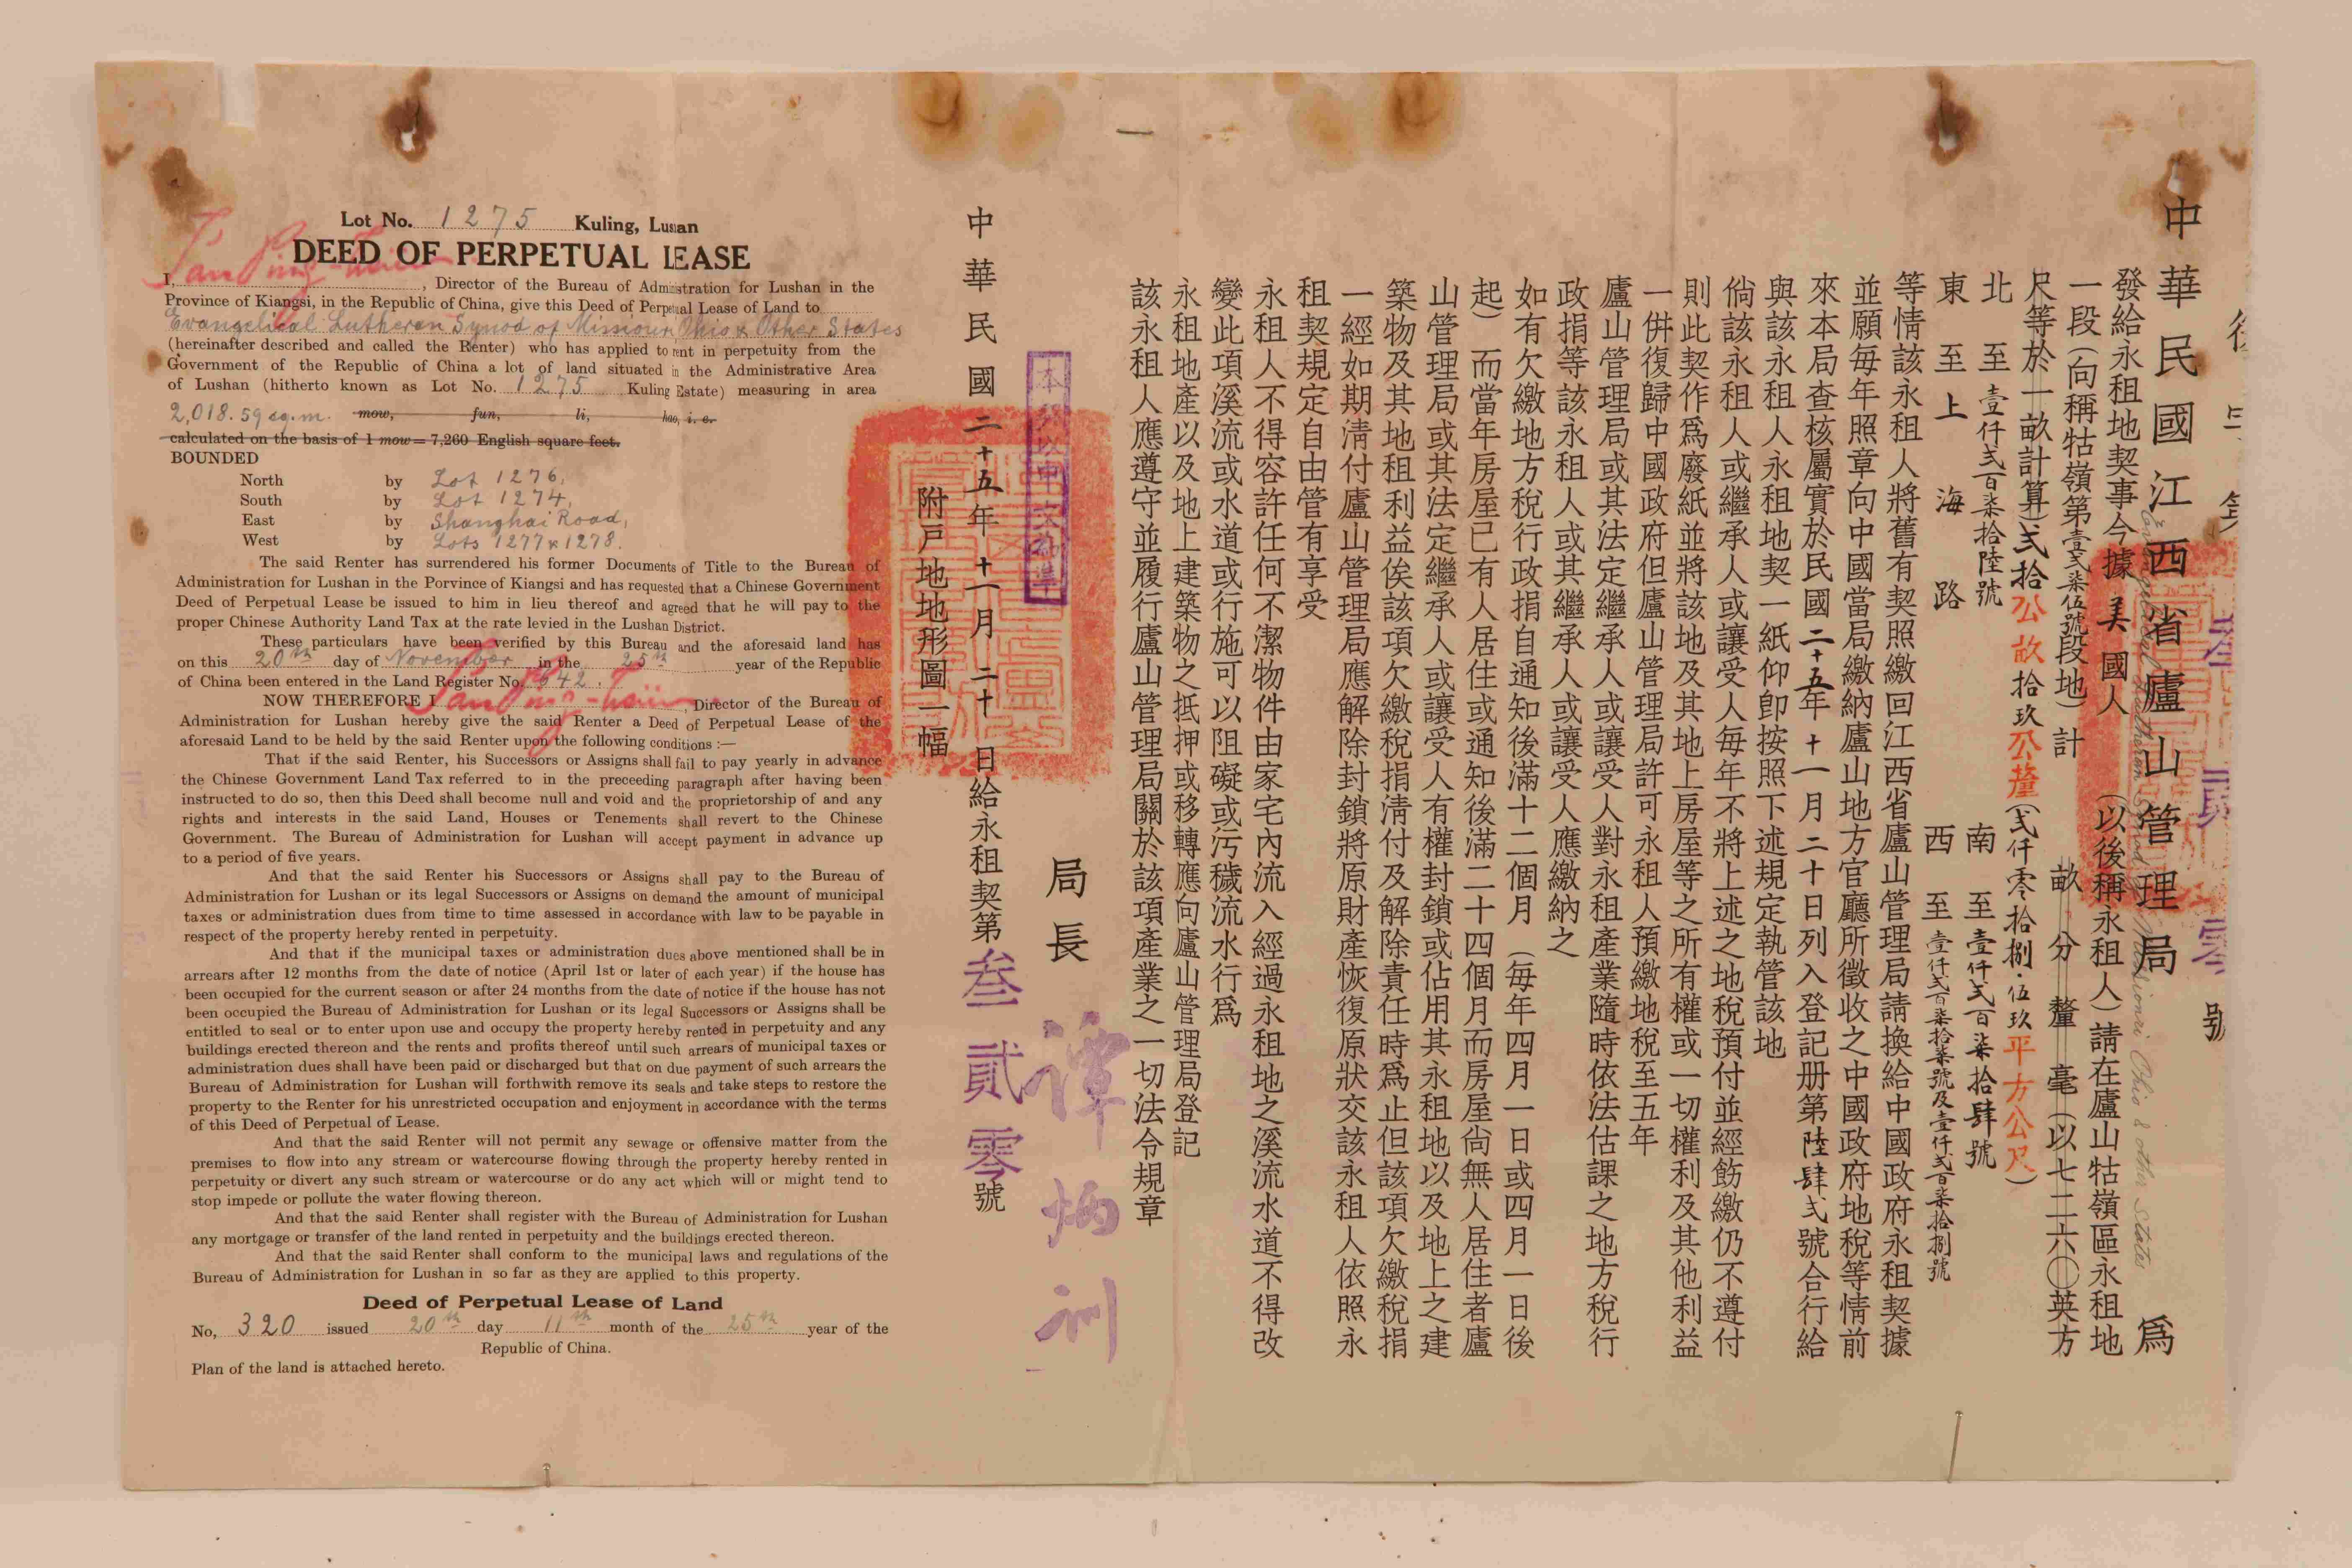 Lot No. 1275 Kuling, Lushan
DEED OF PERPETUAL LEASE
I, Tan Ping-hsün, Director of the Bureau of Administration for Lushan in the
Province of Kiangsi, in the Republic of China, give this Deed of Perpetual Lease of Land to
Evangelical Lutheran Synod of Missouri, Ohio & Other States
(hereinafter described and called the Renter) who has applied to rent in perpetuity from the
Government of the Republic of China a lot of land situated in the Administrative Area
of Lushan (hitherto known as Lot No. 1275 Kuling Estate) measuring in area
2,018.59 sq.m. mow, fun, li, hao, i. e.
calculated on the basis of 1 mow = 7,260 English square feet.
BOUNDED
North by Lot 1276,
South by Lot 1274,
East by Shanghai Road,
West by Lots 1277 & 1278.
The said Renter has surrendered his former Documents of Title to the Bureau of
Administration for Lushan in the Porvince of Kiangsi and has requested that a Chinese Government
Deed of Perpetual Lease be issued to him in lieu thereof and agreed that he will pay to the
proper Chinese Authority Land Tax at the rate levied in the Lushan District.
These particulars have been verified by this Bureau and the aforesaid land has
on this 20th day of November in the 25th year of the Republic
of China been entered in the Land Register No. 642.
NOW THEREFORE I Tan Ping-hsün Director of the Bureau of
Administration for Lushan hereby give the said Renter a Deed of Perpetual Lease of the
aforesaid Land to be held by the said Renter upon the following conditions :—
That if the said Renter, his Successors or Assigns shall fail to pay yearly in advance
the Chinese Government Land Tax referred to in the preceeding paragraph after having been
instructed to do so, then this Deed shall become null and void and the proprietorship of and any
rights and interests in the said Land, Houses or Tenements shall revert to the Chinese
Government. The Bureau of Administration for Lushan will accept payment in advance up
to a period of five years.
And that the said Renter his Successors or Assigns shall pay to the Bureau of
Administration for Lushan or its legal Successors or Assigns on demand the amount of municipal
taxes or administration dues from time to time assessed in accordance with law to be payable in
respect of the property hereby rented in perpetuity.
And that if the municipal taxes or administration dues above mentioned shall be in
arrears after 12 months from the date of notice (April 1st or later of each year) if the house has
been occupied for the current season or after 24 months from the date of notice if the house has not
been occupied the Bureau of Administration for Lushan or its legal Successors or Assigns shall be
entitled to seal or to enter upon use and occupy the property hereby rented in perpetuity and any
buildings erected thereon and the rents and profits thereof until such arrears of municipal taxes or
administration dues shall have been paid or discharged but that on due payment of such arrears the
Bureau of Administration for Lushan will forthwith remove its seals and take steps to restore the
property to the Renter for his unrestricted occupation and enjoyment in accordance with the terms
of this Deed of Perpetual of Lease.
And that the said Renter will not permit any sewage or offensive matter from the
premises to flow into any stream or watercourse flowing through the property hereby rented in
perpetuity or divert any such stream or watercourse or do any act which will or might tend to
stop impede or pollute the water flowing thereon.
And that the said Renter shall register with the Bureau of Administration for Lushan
any mortgage or transfer of the land rented in perpetuity and the buildings erected thereon.
And that the said Renter shall conform to the municipal laws and regulations of the
Bureau of Administration for Lushan in so far as they are applied to this property.
Deed of Perpetual Lease of Land
No, 320 issued 20th day 11th month of the 25th year of the
Republic of China.
Plan of the land is attached hereto.
叁貳零號
中華民國江西省廬山管理局為
Evangelical Lutheran Synod of Missouri Ohio & other States
發給永租地契事今據美國人(以後稱永租人)請在廬山牯嶺區永租地
一段(向稱牯嶺第壹弍柒伍號段地)計 畝 分 釐 毫(以七二六〇英方
尺等於一畝計算)弍拾公畝拾玖公釐(弍仟零拾捌·伍玖平方公尺)
北至壹仟弍百柒拾陸號 南至壹仟弍百柒拾肆號
東至上海路 西至壹仟弍百柒拾柒號及壹仟弍百柒拾捌號
等情該永租人將舊有契照繳回江西省廬山管理局請換給中國政府永租契據
並願每年照章向中國當局繳納廬山地方官廳所徵收之中國政府地稅等情前
來本局查核屬實於民國二十五年十一月二十日列入登記册第陸肆弍號合行給
與該永租人永租地契一紙仰卽按照下述規定執管該地
倘該永租人或繼承人或讓受人每年不將上述之地稅預付並經飭繳仍不遵付
則此契作爲廢紙並將該地及其地上房屋等之所有權或一切權利及其他利益
一併復歸中國政府但廬山管理局許可永租人預繳地稅至五年
廬山管理局或其法定繼承人或讓受人對永租產業隨時依法估課之地方稅行
政捐等該永租人或其繼承人或讓受人應繳納之
如有欠繳地方稅行政捐自通知後滿十二個月(每年四月一日或四月一日後
起)而當年房屋已有人居住或通知後滿二十四個月而房屋尙無人居住者廬
山管理局或其法定繼承人或讓受人有權封鎖或佔用其永租地以及地上之建
築物及其地租利益俟該項欠繳稅捐清付及解除責任時爲止但該項欠繳稅捐
一經如期清付廬山管理局應解除封鎖將原財產恢復原狀交該永租人依照永
租契規定自由管有享受
永租人不得容許任何不潔物件由家宅內流入經過永租地之溪流水道不得改
變此項溪流或水道或行施可以阻礙或污穢流水行爲
永租地產以及地上建築物之抵押或移轉應向廬山管理局登記
該永租人應遵守並履行廬山管理局關於該項產業之一切法令規章
局長 譚炳訓
本契以中文為準
中華民國二十五年十一月二十日給永租契第叁貳零號
附戶地地形圖一幅